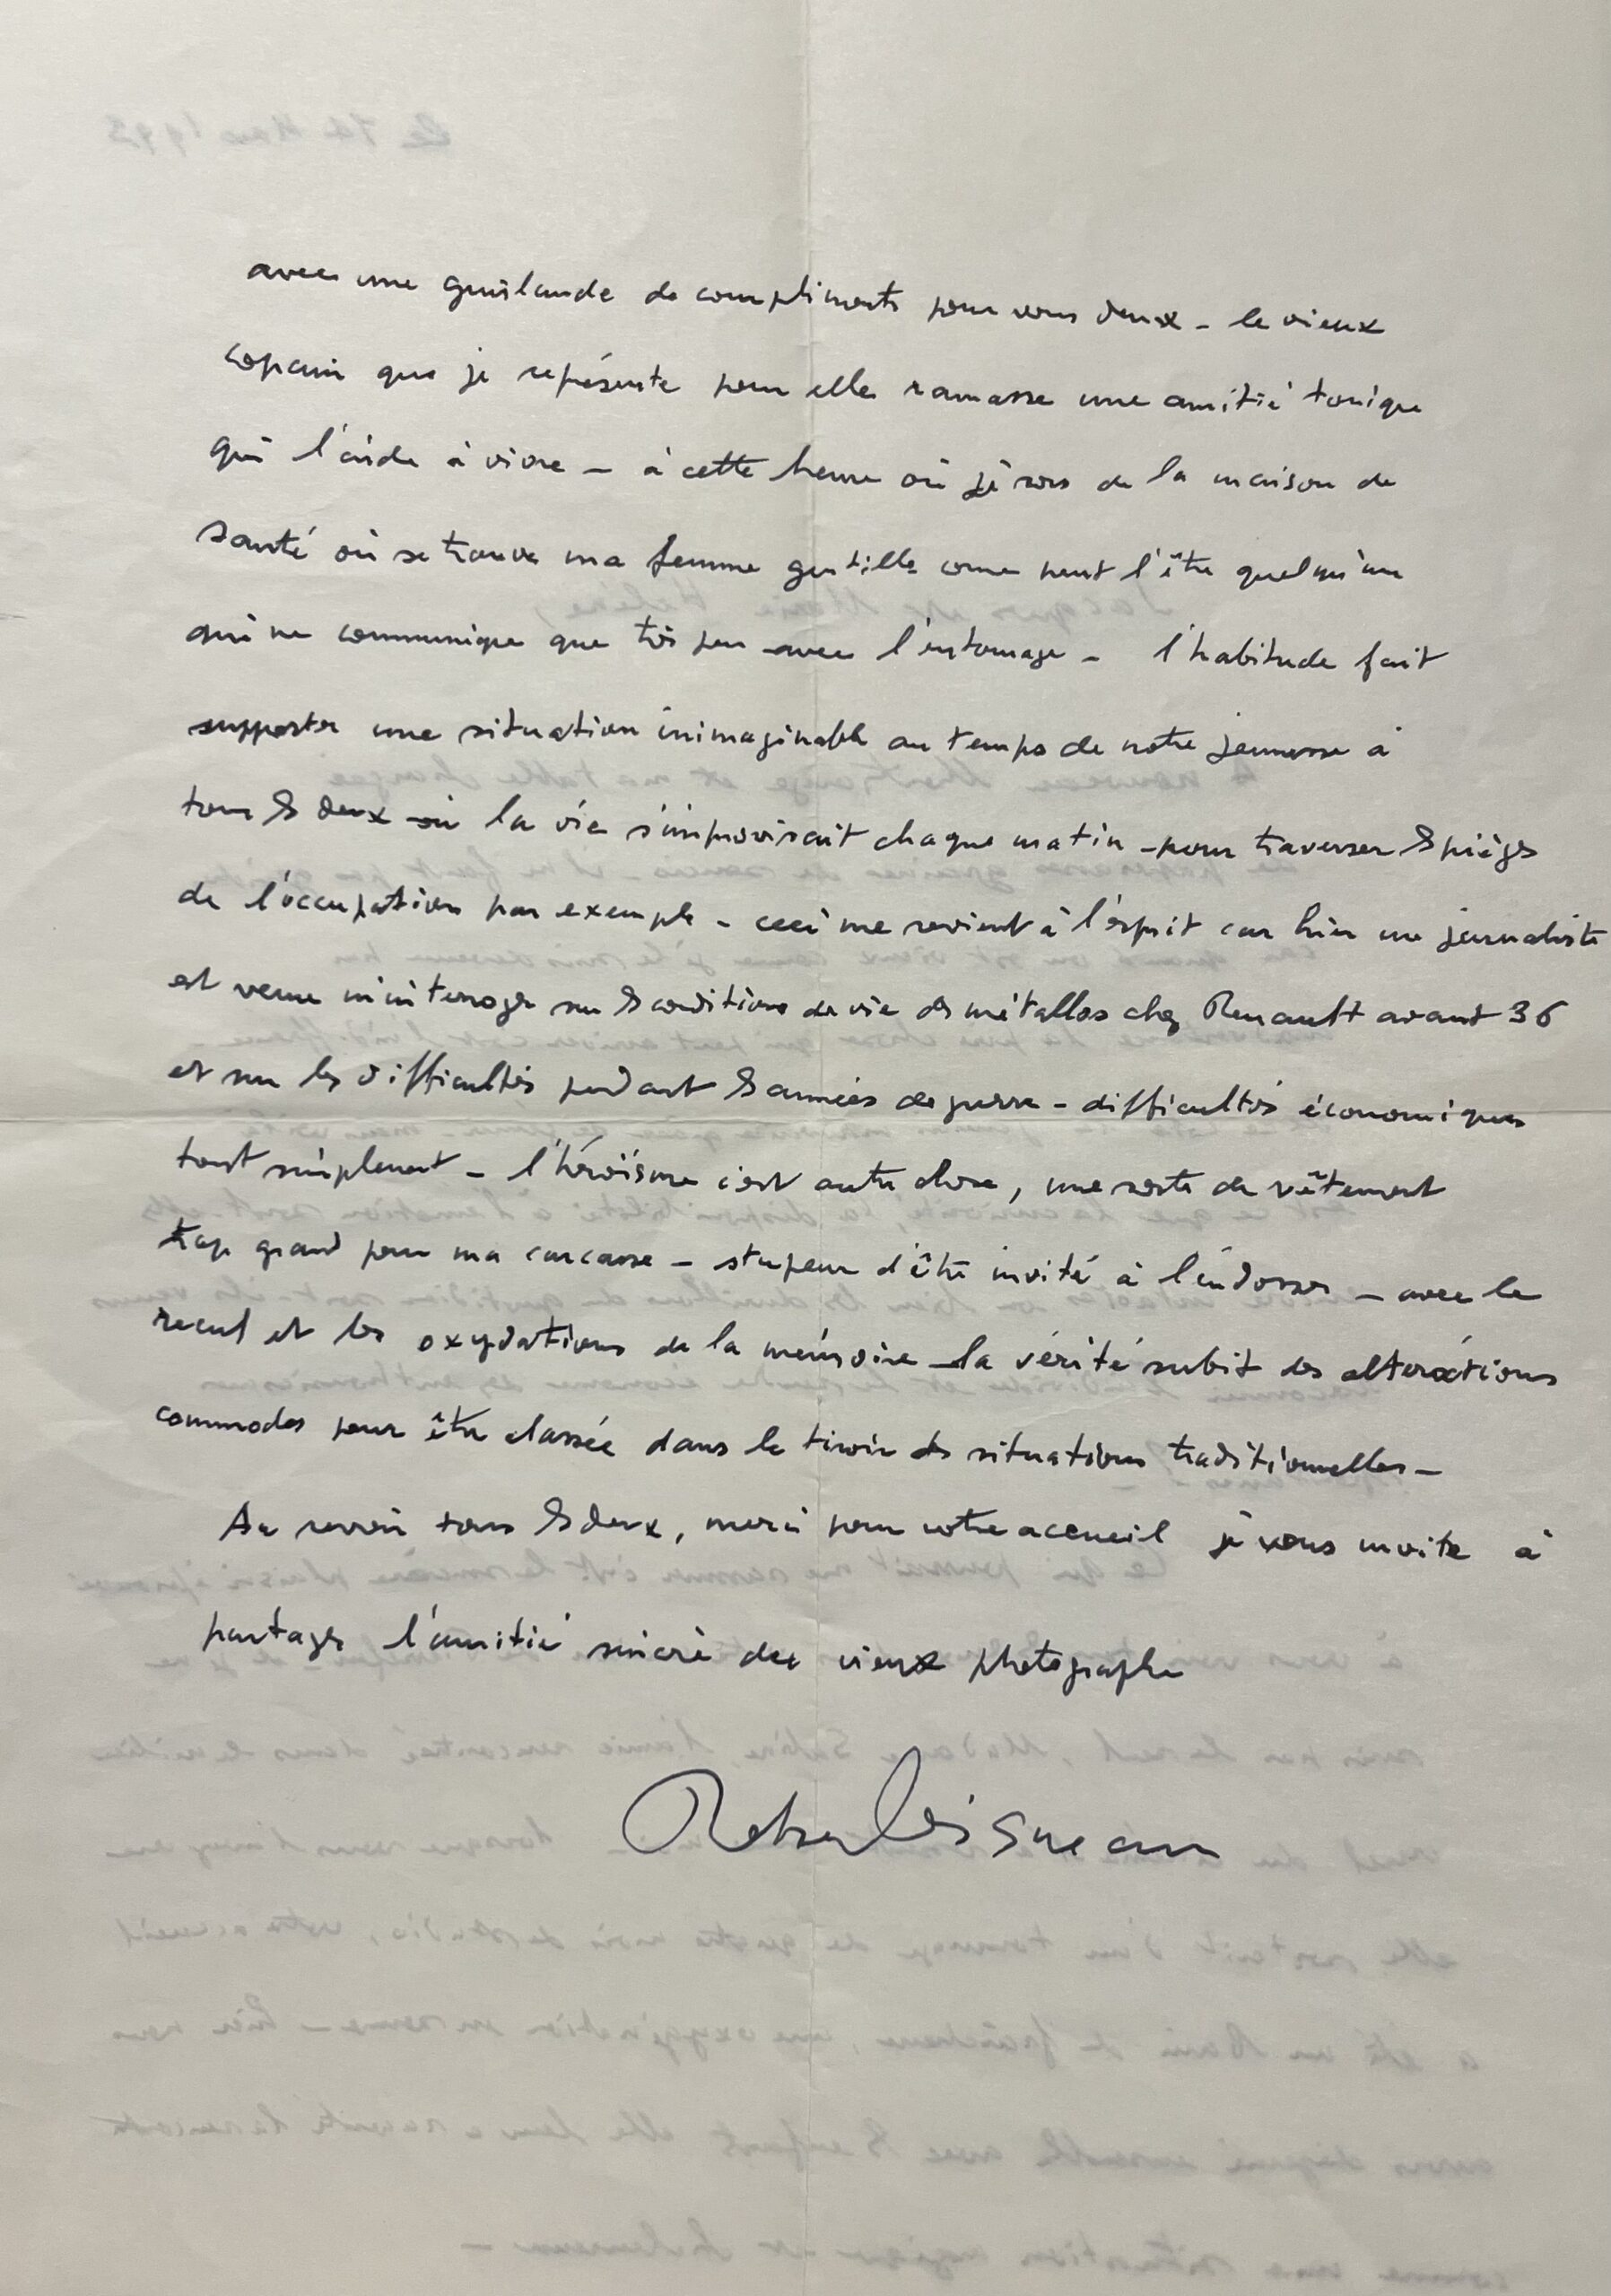 avec une guirlande de compliments pour vous deux - le vieux
copain que je représente pour elle ramasse une amitié tonique
qui l'aide à vivre - à cette heure où je sors de la maison de
santé où se trouve ma femme gentille come peut l'être quelqu'un
qui ne communique que très peu avec l'entourage - l'habitude fait
supporter une situation inimaginable au temps de notre jeunesse à
tous les deux où la vie s'improvisait chaque matin - pour traverser les pièges
de l'occupation par exemple - ceci me revient à l'esprit car hier une journaliste
est venue m'interroger sur les conditions de vie des métallos chez Renault avant 36
et sur les difficultés pendant les années de guerre - difficultés économiques
tout simplement - l'héroïsme c'est autre chose, une sorte de vêtement
trop grand pour ma carcasse - stupeur d'être invité à l'endosser - avec le
recul et les oxydations de la mémoire la vérité subit des altérations
commodes pour être classée dans le tiroir des situations traditionnelles -
Au revoir tous les deux, merci pour votre acceuil je vous invite à
partager l'amitié sincère du vieux photographe
Robert Doisneau